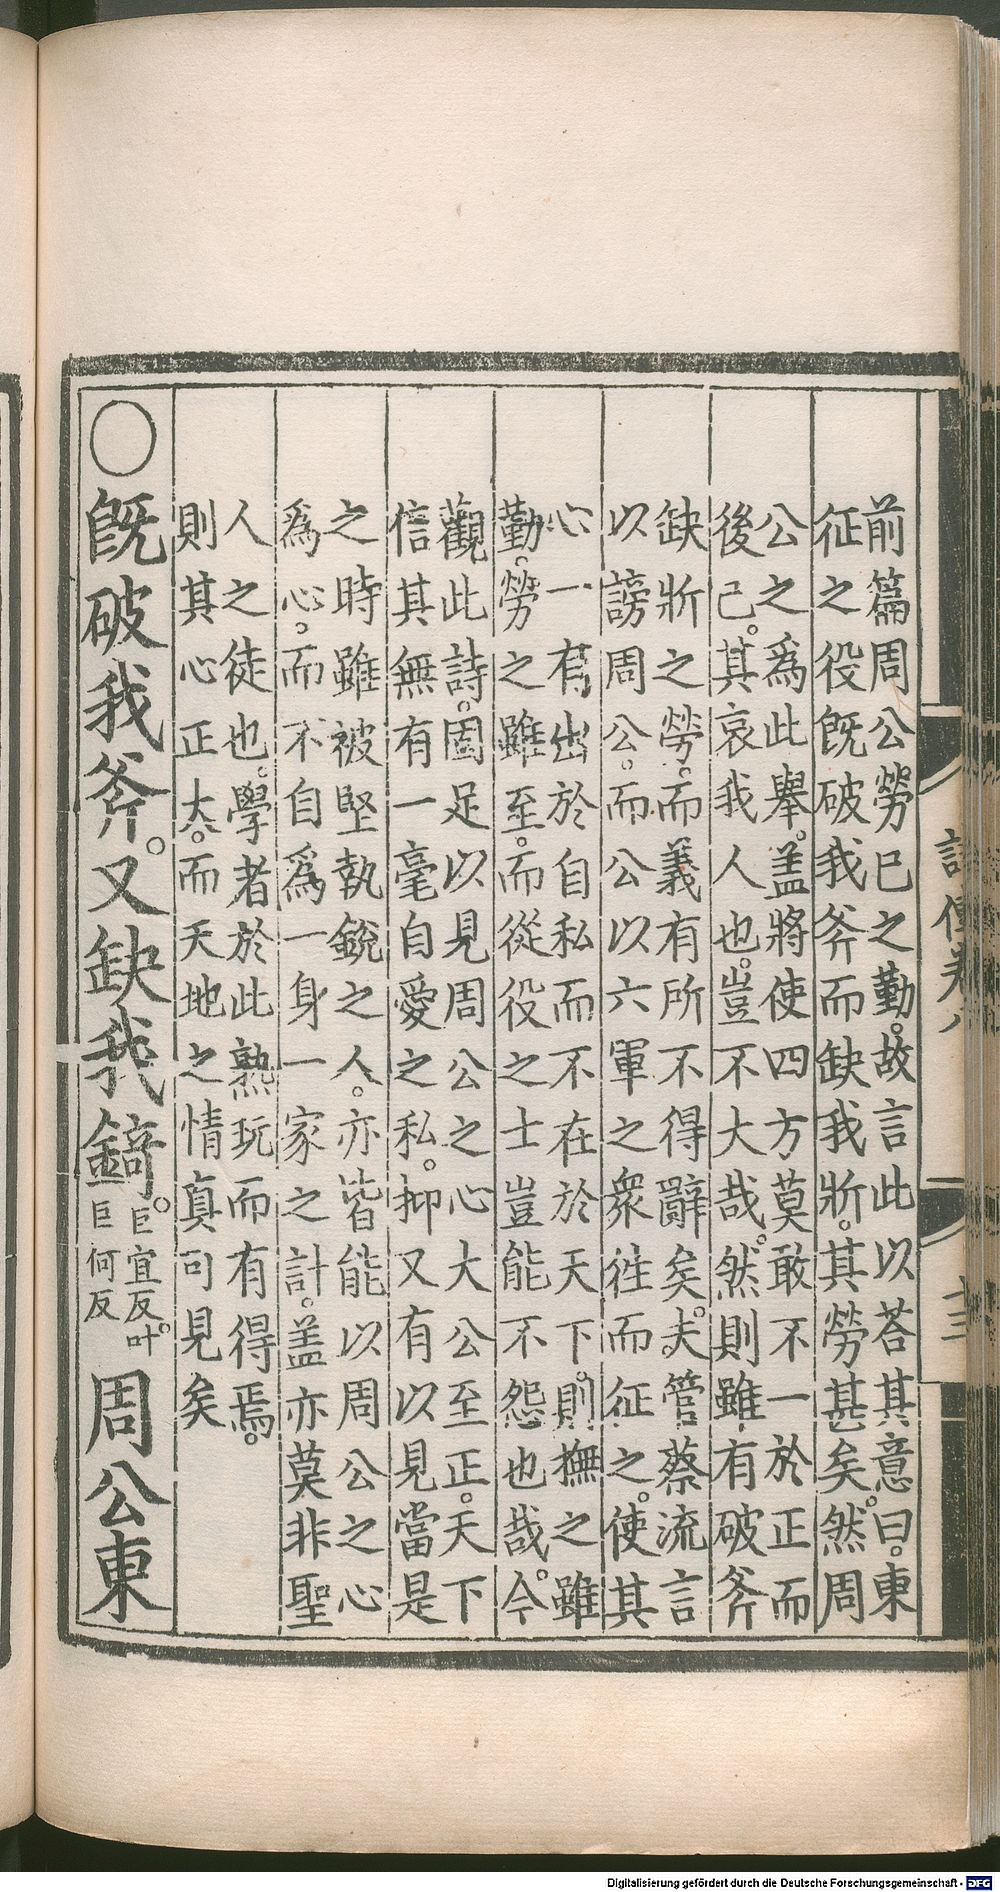 詩傳卷八
十三
前篇周公勞巳之勤。故言此以荅其意曰。東
征之役旣破我斧而缺我斨。其勞甚矣。然周
公之爲此舉。盖將使四方莫敢不一於正而
後己。其哀我人也。豈不大哉。然則雖有破斧
缺斨之勞。而義有所不得辭矣。夫管蔡流言
以謗周公。而公以六軍之衆徃而征之。使其
心一有出於自私而不在於天下。則撫之雖
勤。勞之雖至。而從役之士豈能不怨也哉。今
觀此詩。固足以見周公之心大公至正。天下
信其無有一毫自愛之私。抑又有以見當是
之時雖被堅執銳之人。亦皆能以周公之心
爲心。而不自爲一身一家之計。盖亦莫非聖
人之徒也。學者於此熟玩而有得焉。
則其心正大。而天地之情真可見矣
○旣破我斧。又缺我錡。巨宜反叶。巨何反 周公東
Digitalisierung gefördert durch die Deutsche Forschungsgemeinschaft - DFG